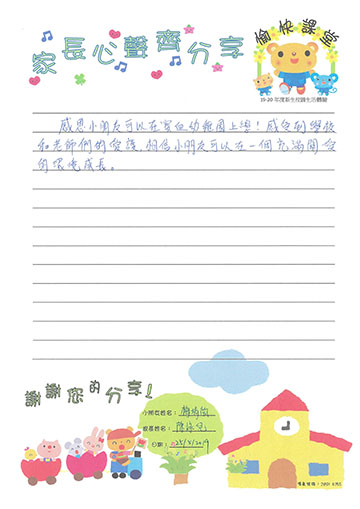 家長心聲齊分享
愉快課堂
19-20 年度新生校園生活體驗
感恩小朋友可以在宣道幼稚園上學！感受到學校
和老師們的愛護，相信小朋友可以在一個充滿關愛
的環境成長。
謝謝您的分享！
小朋友姓名：
家長姓名：
日期：